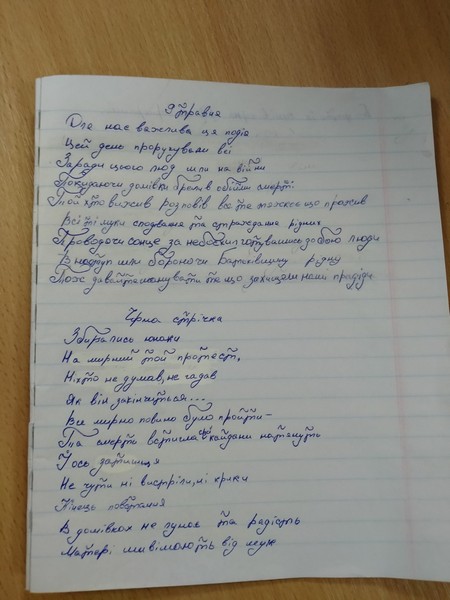 9 травня
Для нас важлива ця подія
Цей день проручували всі
Заради цього люд шли на війни
Покидаючи домівки брели в обійми смерті
Той хто вижив розповів все та тяжкесь що прожив
Всі ті муки сподвання та страждання рідних
Проводячи сонце за небосхил готувались до бою люди
В наступ шли бороначи Батьківщину рідну
Тож давайте шонувати те що захищали наші прадіди

Чрна стрічка
Збирались юнаки
На мирний той протест,
Ніхто не думав, не гадав
Як він закінчиться...
Все мирно повино було пройти–
Та смерти встигла свої кайдани натянуть
І ось затишшя
Не чути ні вистріли, ні крики
Кінець повстання
В домівках не гумор та радість
Матері ши від мук